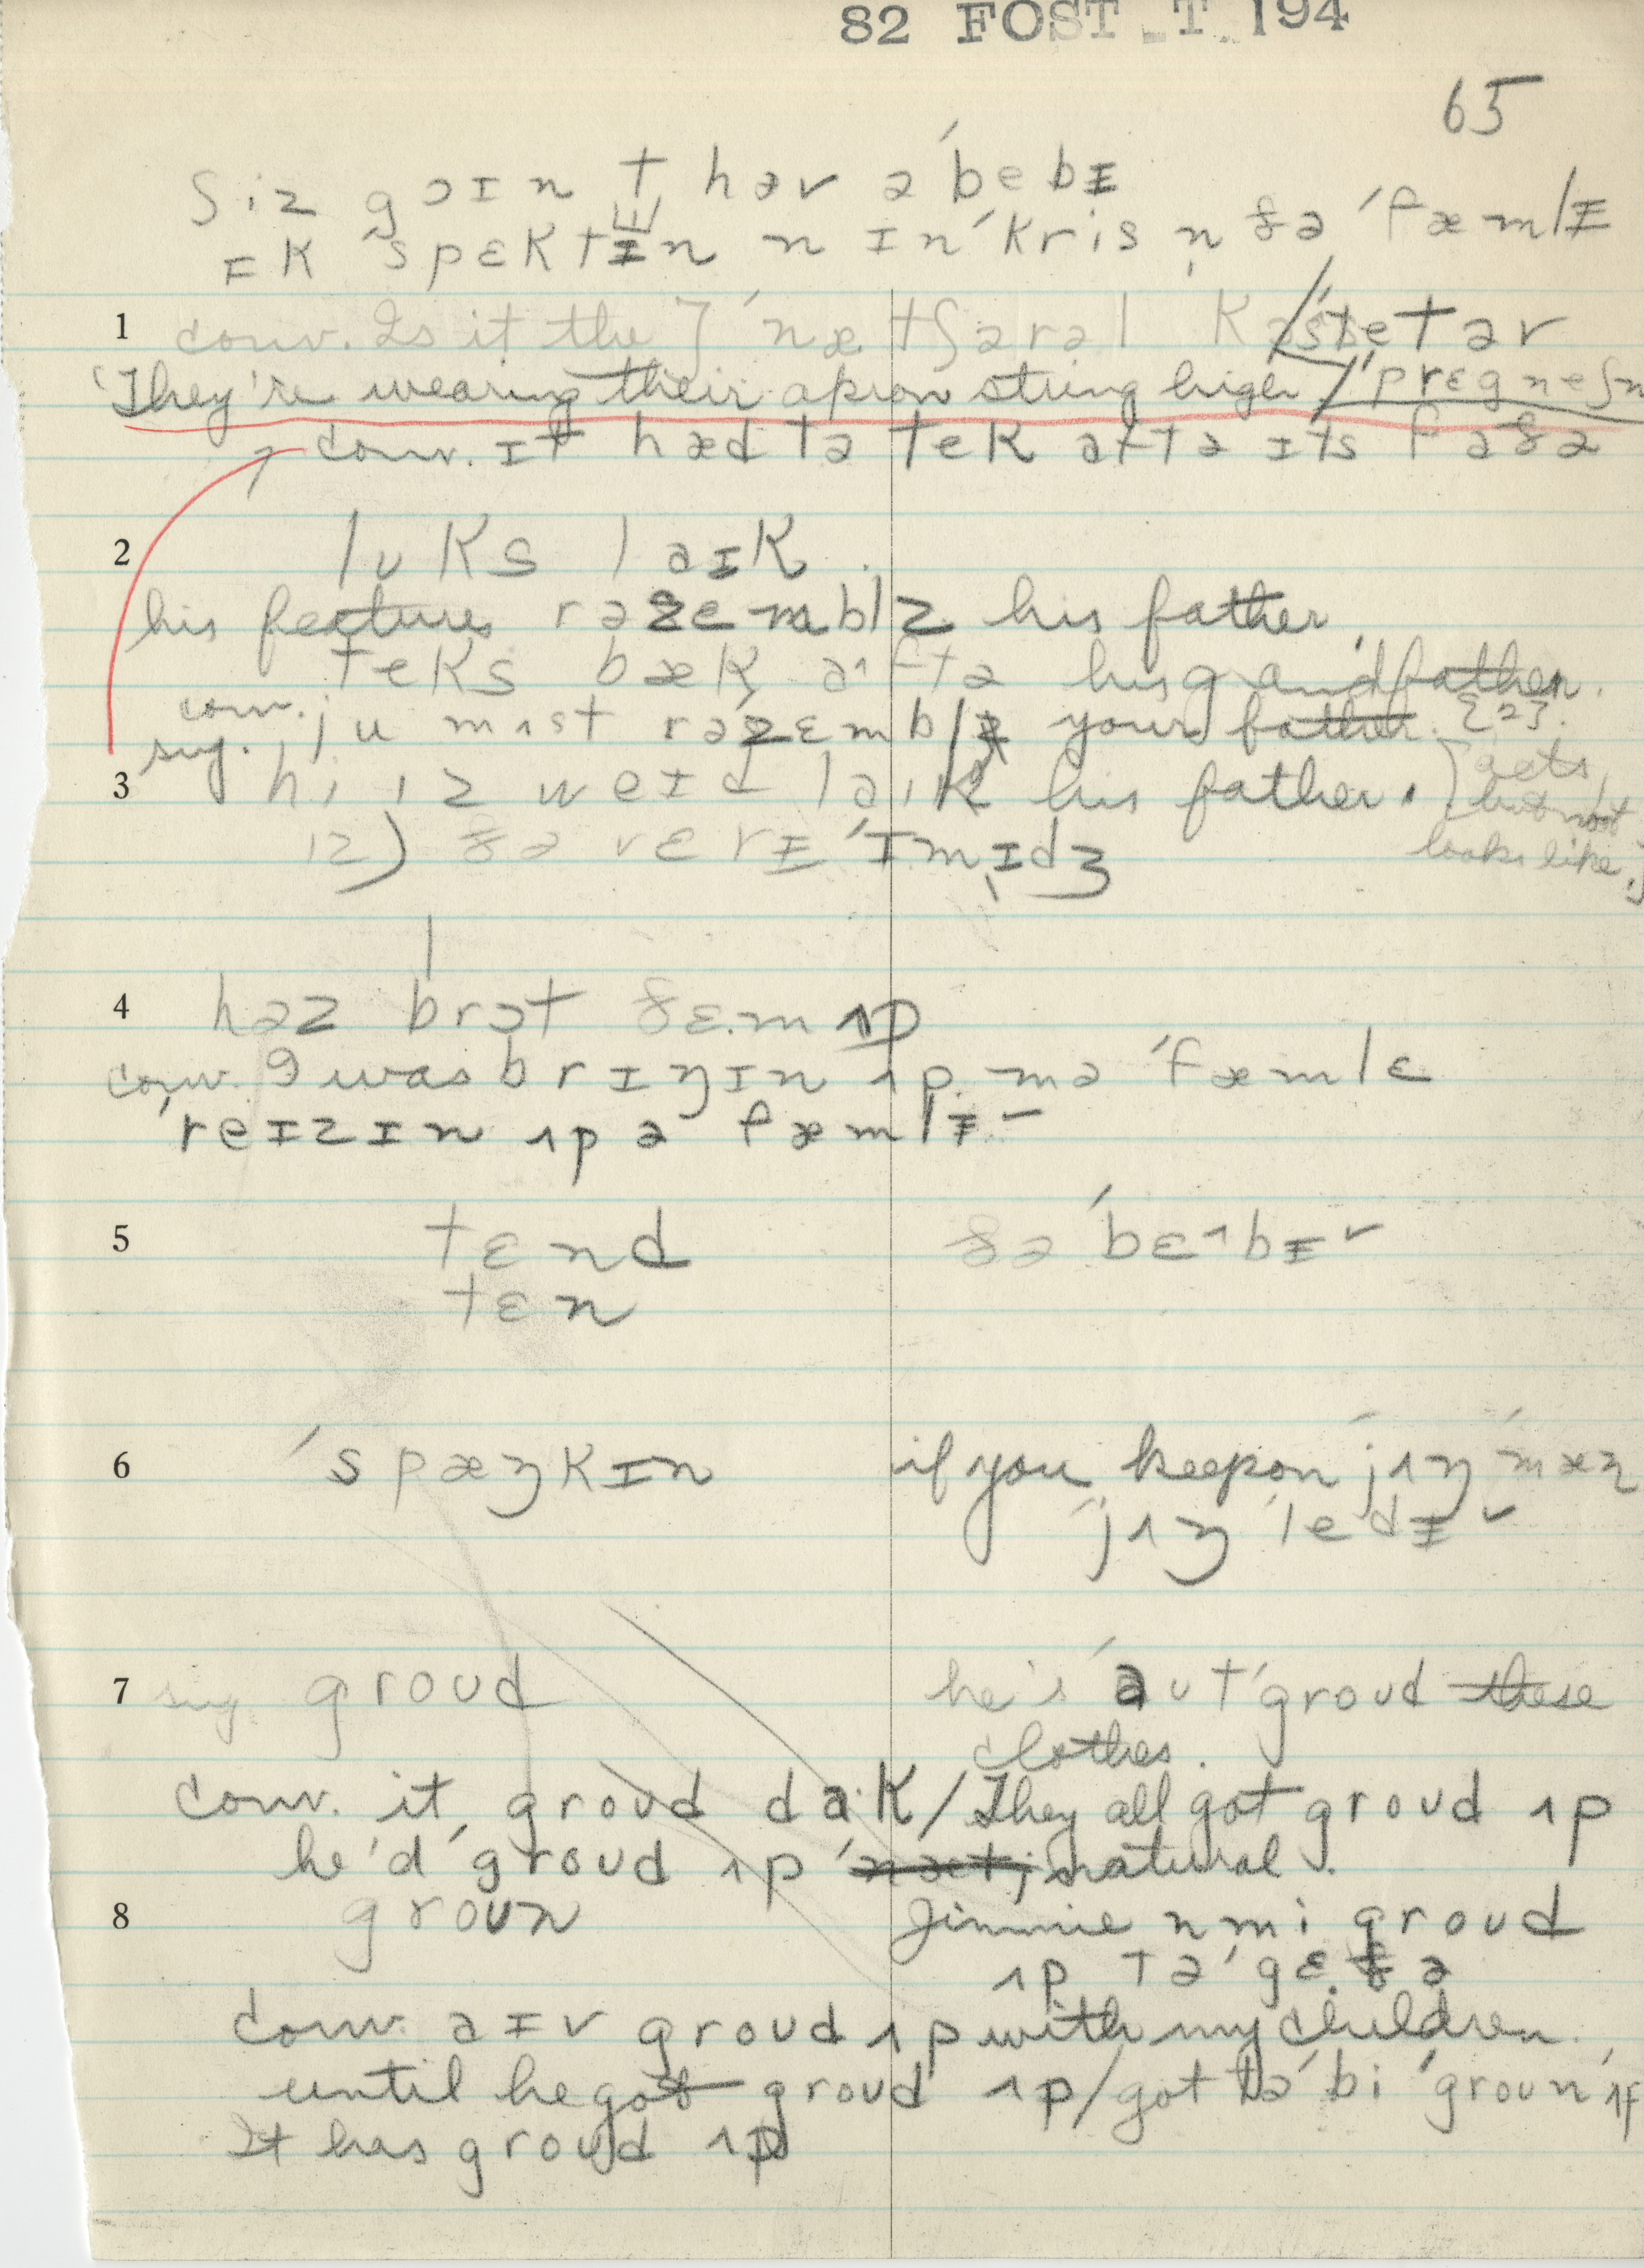 82 FOST T 194
65
ʃiz gɔɪn t hav ə ˈbebɪ
ɪkˈspɛktɪn n ɪnˈkris n̩ ðə ˈfæmlɪ
1 conv. Is it the] ˈnætʃərəl
They're wearing their apron string high / ˈprɛgneʃn
conv. ɪt hæd tə tek aftə ɪts faðə
2 lʊks laɪk
his features rəzɛmblz his father
teks bæk aftə his grandfather.
conv. ju mʌst rəzɛmbl your father. {2}.
3 sug. hi ɪz weɪd laɪk his father. [acts, but not looks like.]
ɪz) ðə vɛrɪ ˈɪmɪdʒ
4 həz brɔt ðɛ.m ʌp
conv. I was brɪŋɪn ʌp mə ˈfæmlɛ
ˈreɪzɪn ʌp ə fæmlɪ -
5 tɛnd ðə ˈbɛˆbɪ ✓
tɛn
6 ˈspæŋkɪn if you keep on jʌŋ ˈmæn
jʌŋ ˈledɪ ✓
7 sug. groud he's ˈaʊtˈgroud these
clothes.
conv. it groud da·k / They all got groud ʌp
he'd ˈgroud ʌp natural.
8 groun Jimmie n mi groud
ʌp təˈgɛ.ðə
conv. aɪv groud ʌp with my children.
until he got groud ʌp / got tə bi ˈgroun ˈʌp
It has groud ʌp